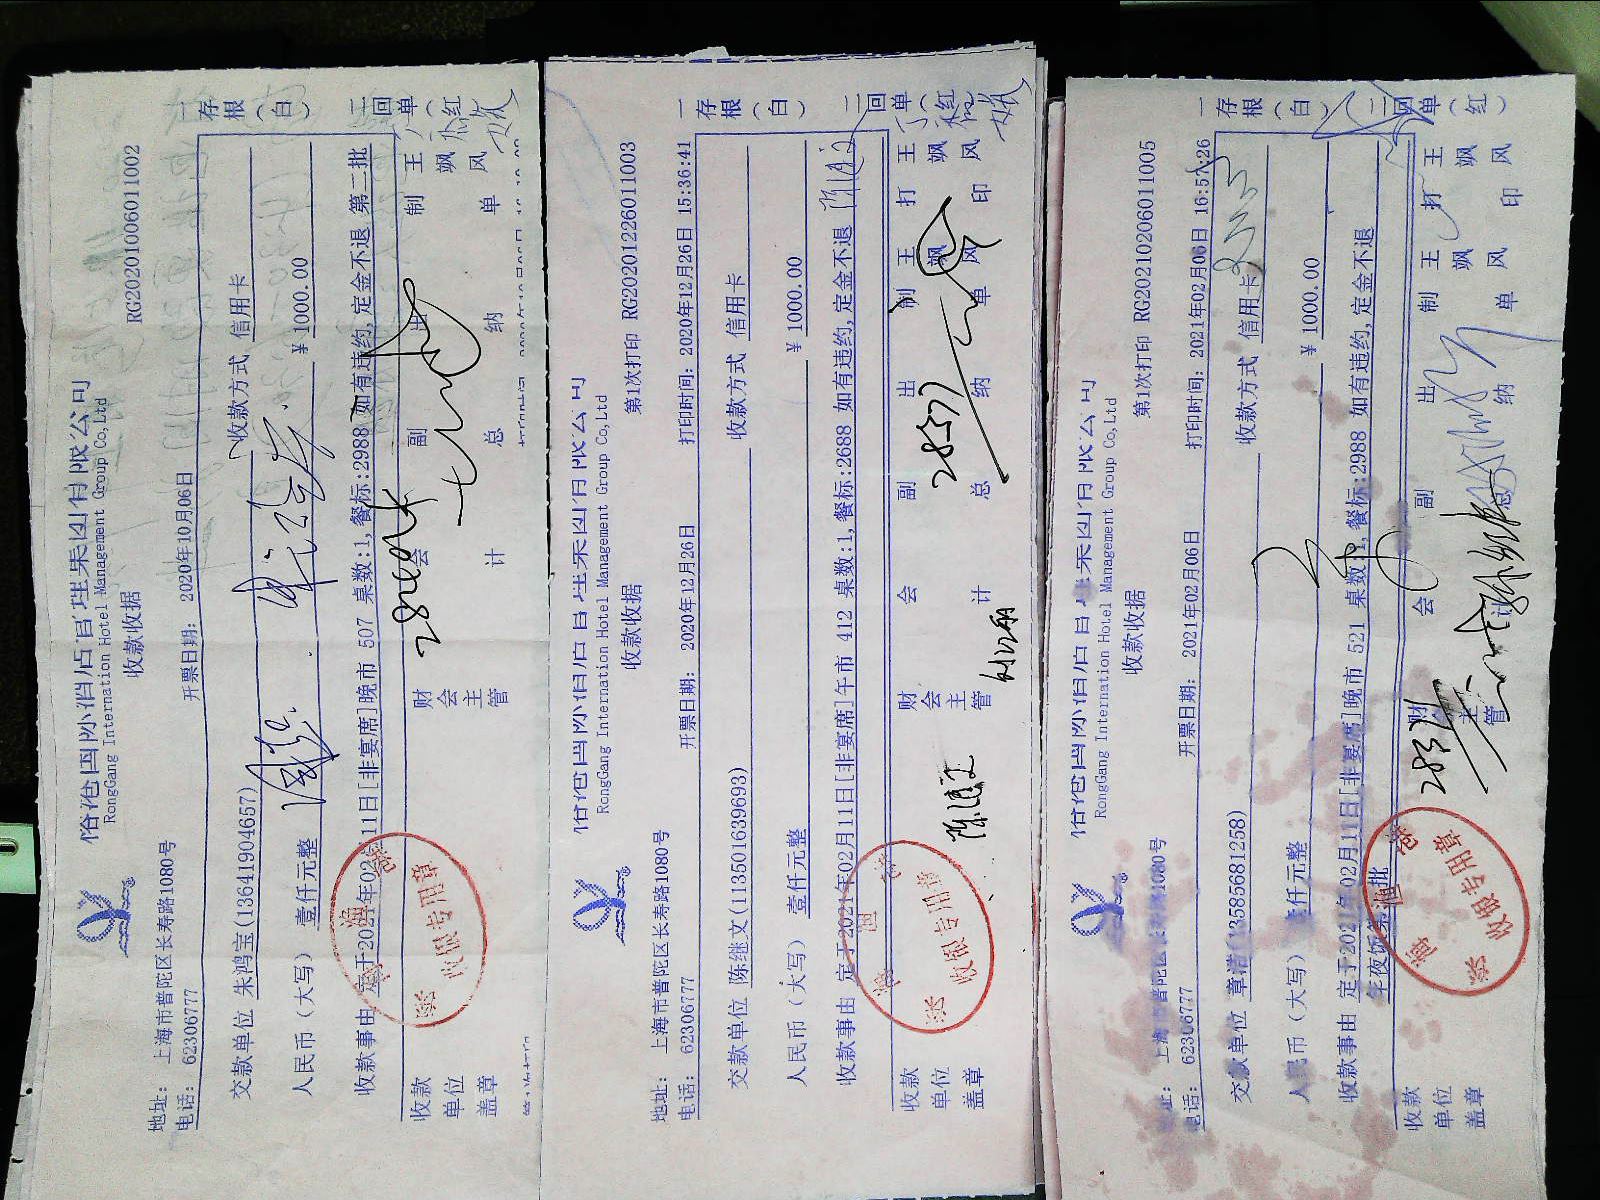 俗港国际酒店管理集团有限公司
RongGang International Hotel Management Group Co,Ltd
收款收据
RG20201006011002
地址: 上海市普陀区长寿路1080号
电话: 62306777
开票日期: 2020年10月06日
交款单位 朱鸿宝(13641904657)
收款方式 信用卡
人民币(大写) 壹仟元整
¥ 1000.00
收款事由 定于2021年02月11日[非宴席]晚市 507 桌数:1,餐标:2988 如有违约,定金不退 第二批
收款单位盖章
财会主管
会计
副总
出纳
制单
王飒风
一存根(白)
二回单(红)
收银专用章
俗港国际酒店管理集团有限公司
RongGang International Hotel Management Group Co,Ltd
收款收据
第1次打印 RG20201226011003
地址: 上海市普陀区长寿路1080号
电话: 62306777
开票日期: 2020年12月26日
打印时间: 2020年12月26日 15:36:41
交款单位 陈继文(113501639693)
收款方式 信用卡
人民币(大写) 壹仟元整
¥ 1000.00
收款事由 定于2021年02月11日[非宴席]午市 412 桌数:1,餐标:2688 如有违约,定金不退
收款单位盖章
财会主管
会计
副总
出纳
制单
王飒风
打印
王飒风
一存根(白)
二回单(红)
收银专用章
俗港国际酒店管理集团有限公司
RongGang International Hotel Management Group Co,Ltd
收款收据
第1次打印 RG20210206011005
地址: 上海市普陀区长寿路1080号
电话: 62306777
开票日期: 2021年02月06日
打印时间: 2021年02月06日 16:57:26
交款单位 章清(13585681258)
收款方式 信用卡
人民币(大写) 壹仟元整
¥ 1000.00
收款事由 定于2021年02月11日[非宴席]晚市 521 桌数:1,餐标:2988 如有违约,定金不退
年夜饭第 批
收款单位盖章
财会主管
会计
副总
出纳
制单
王飒风
打印
王飒风
一存根(白)
二回单(红)
收银专用章